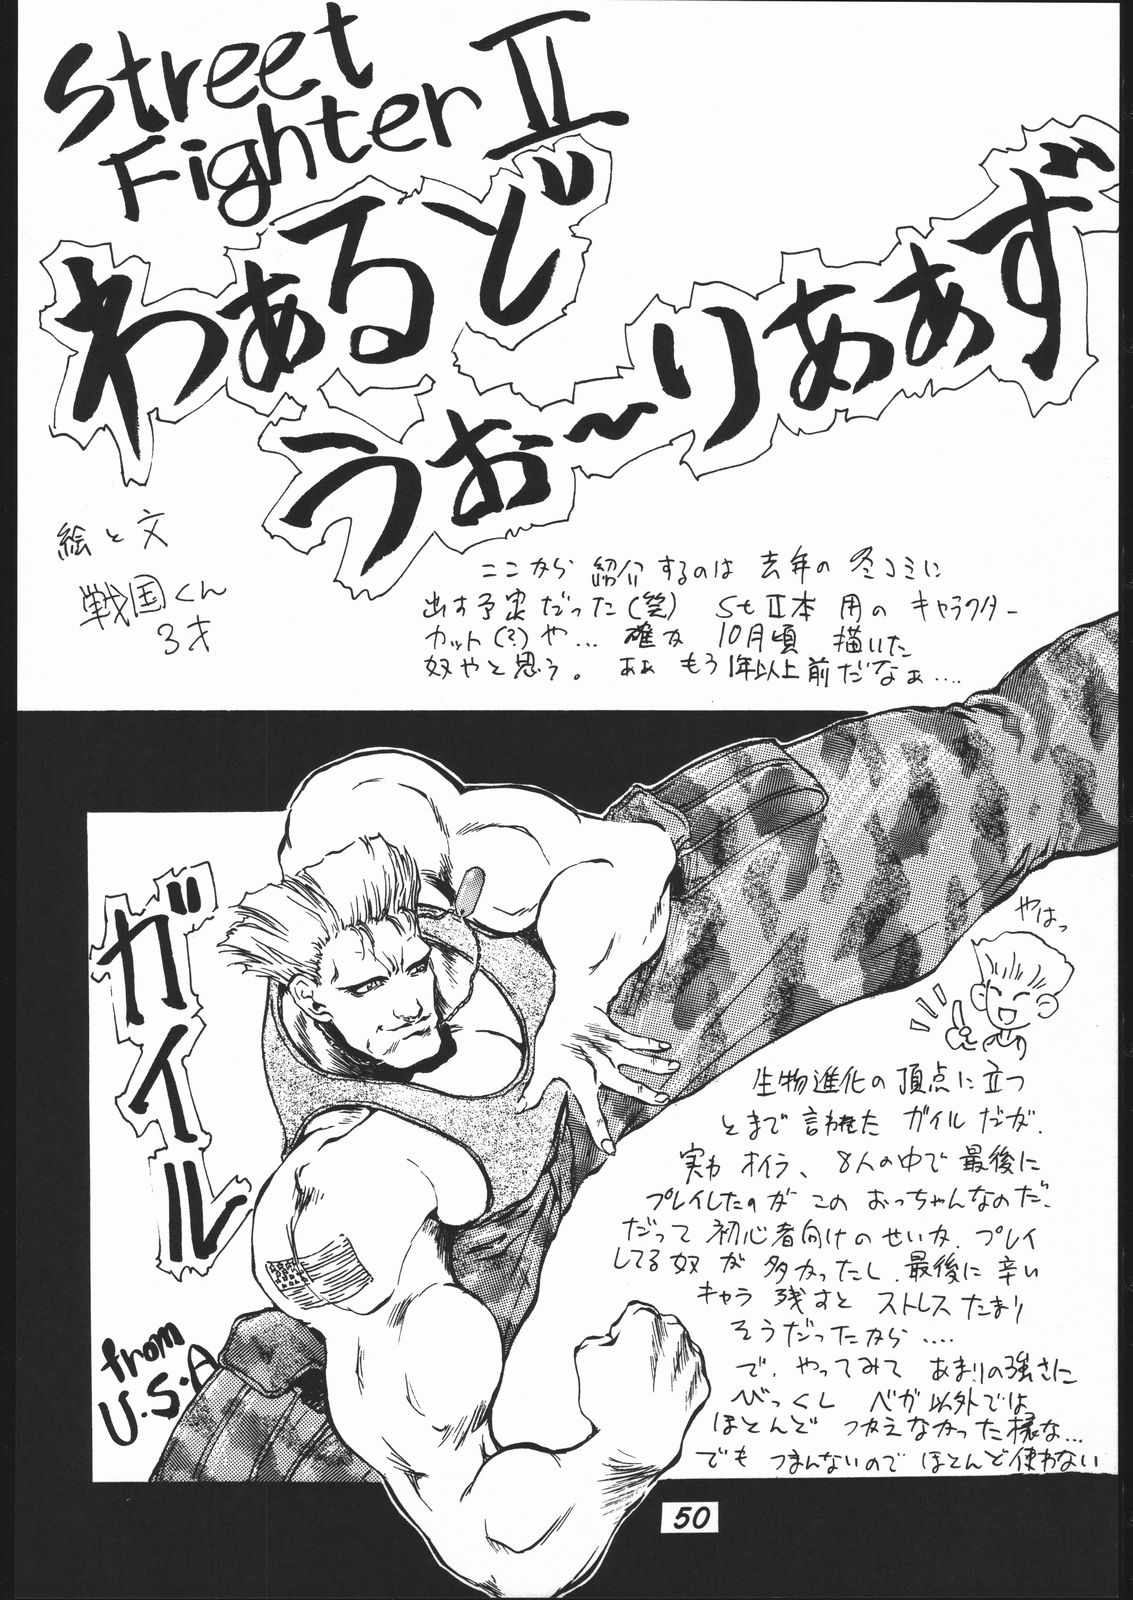 Street
Fighter II
わぁるど
うぉ〜りあぁず
絵と文
戦国くん
3才
ここから紹介するのは去年の冬コミに
出す予定だった(笑) StII本用のキャラクター
カット(?)や… 確か10月頃描いた
奴やと思う。あぁもう1年以上前だなぁ….
ガイル
from
U.S.A
やはっ
生物進化の頂点に立つ
とまで言われた ガイルだが、
実わオイラ、8人の中で最後に
プレイしたのがこのおっちゃんなのだ、
だって初心者向けのせいか、プレイ
してる奴が多かったし、最後に辛い
キャラ残すとストレスたまり
そうだったから….
で、やってみてあまりの強さに
びっくし ベガ以外では
ほとんど つかえなかった様な…
でも つまんないのでほとんど使わない
50